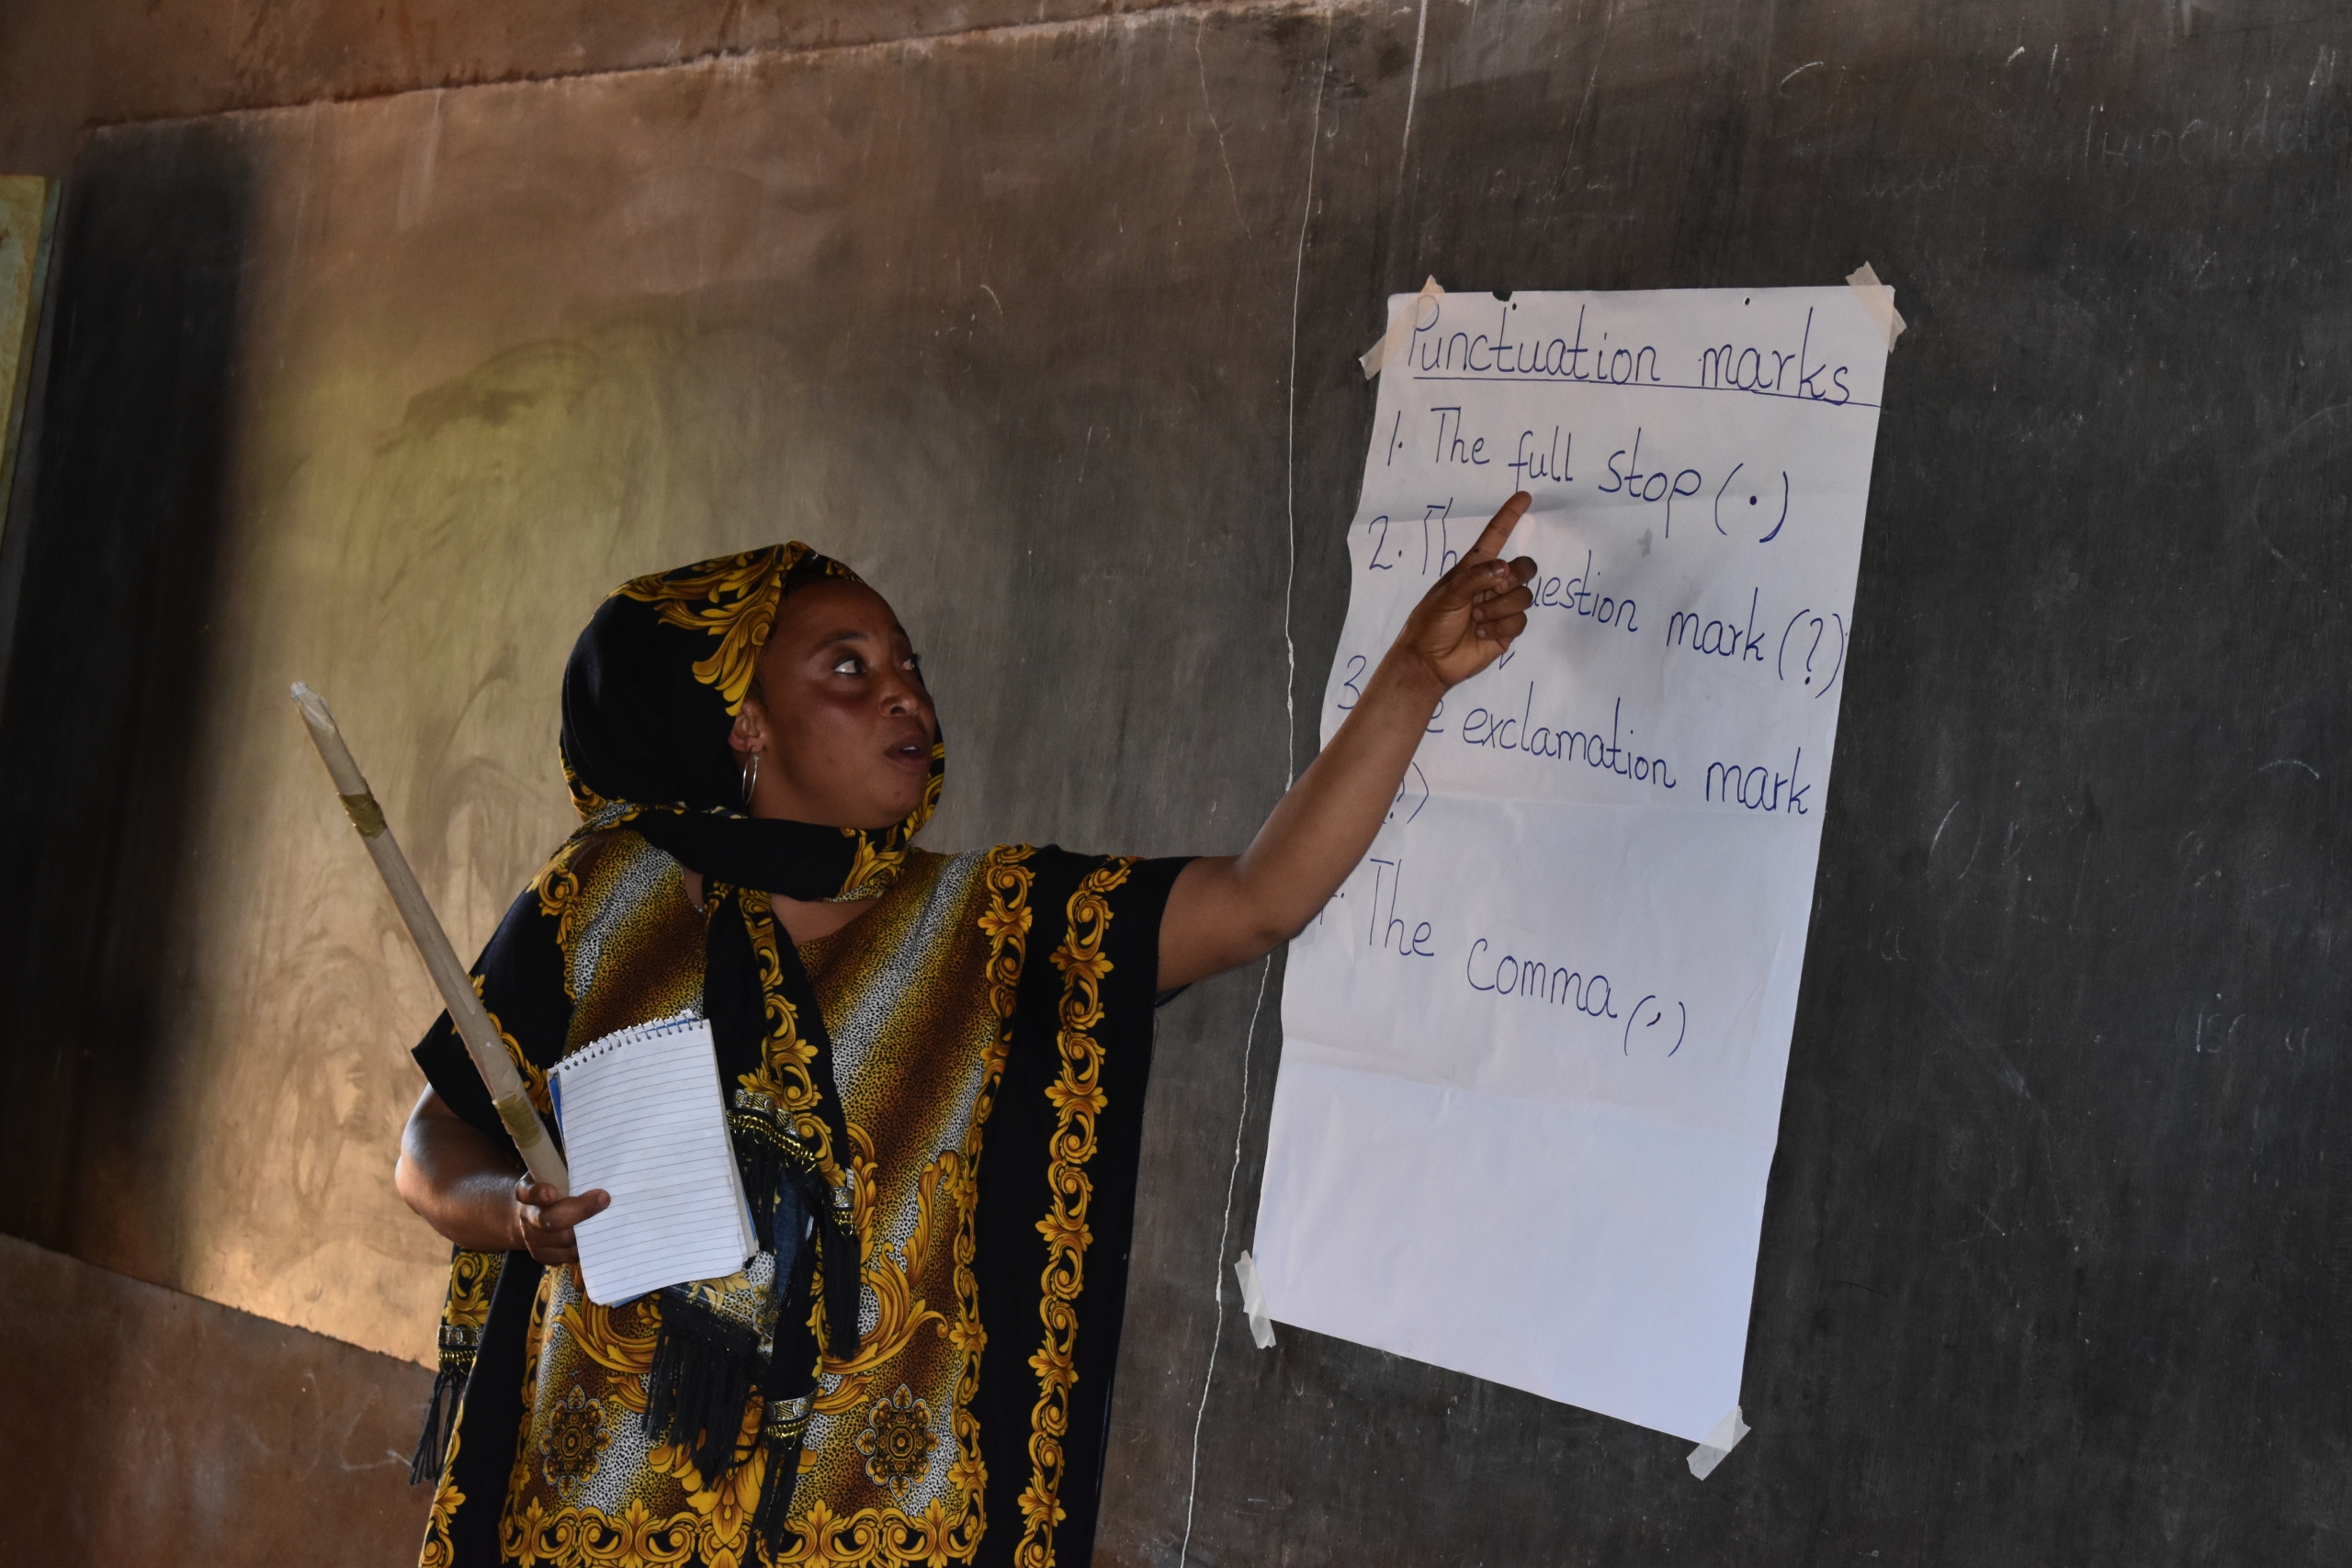 Punctuation marks
1. The full stop (.)
2. The question mark (?)
3. The exclamation mark
?)
The comma (,)